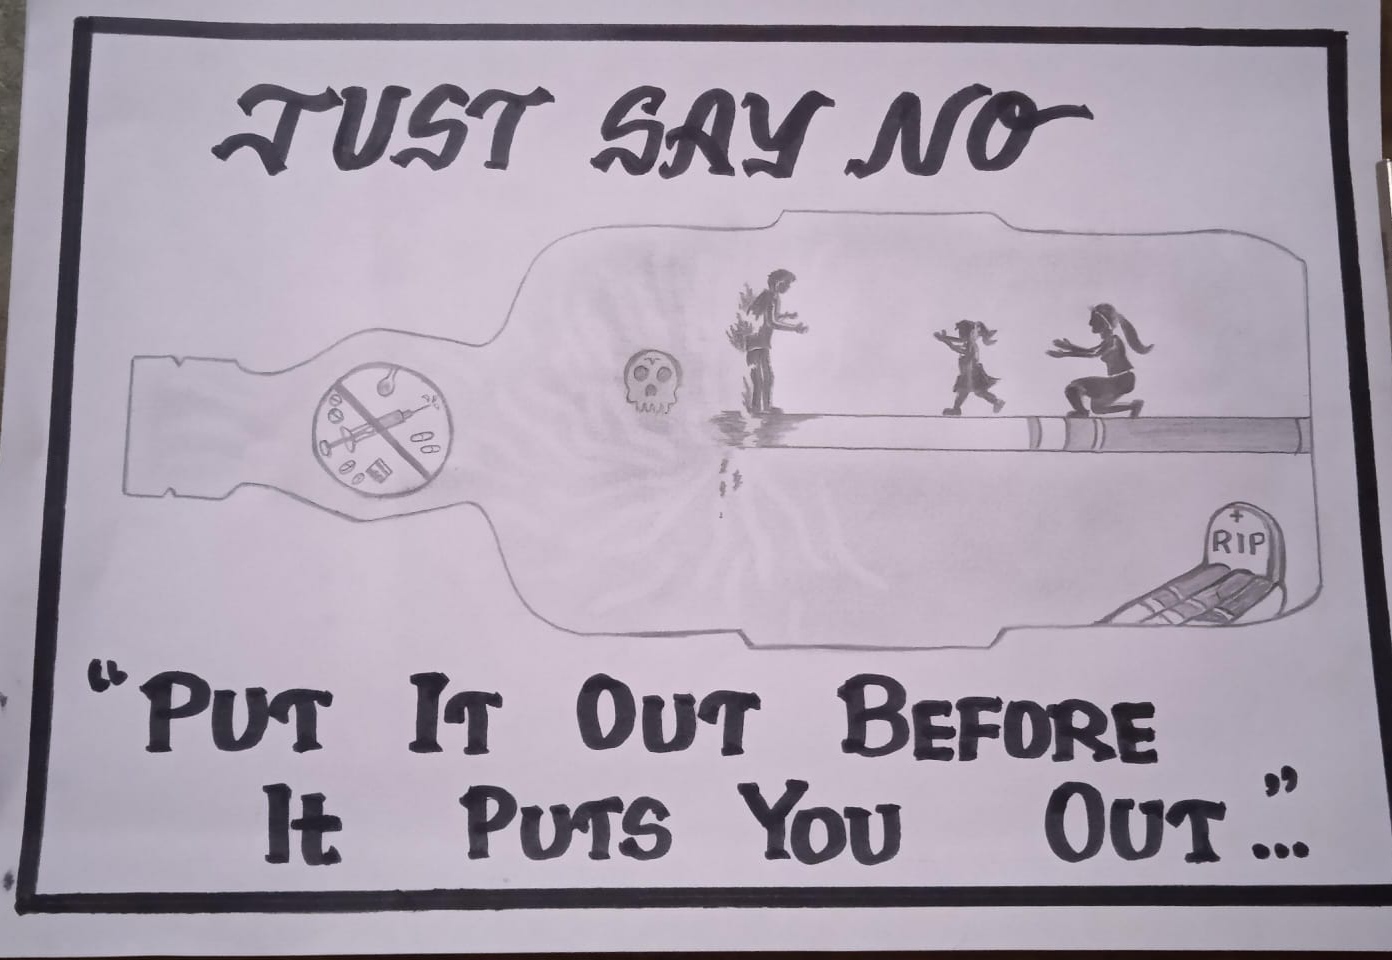 JUST SAY NO
RIP
"PUT IT OUT BEFORE
It PUTS YOU OUT..."